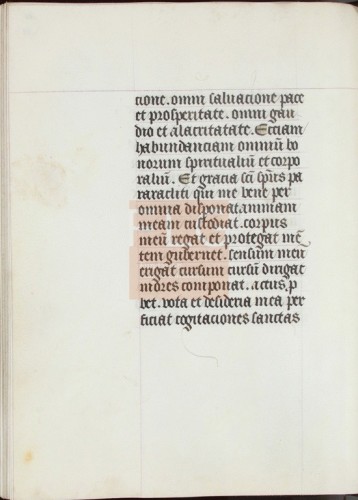 cione. omni saluacione pace
et prosperitate. omni gau
dio et alacritatate. Eciam
habundanciam omniū bo
norum spiritualiū et corpo
raliū. Et gracia sci spūs pa
raracliti qm me bene per
omnia disponat. animam
meam custodiat. corpus
meū regat et protegat mē
tem gubernet. sensum meū
erigat cursum cursū dirigat
mores componat. actus. p
bet. vota et desideria mea per
ficiat cogitaciones sanctas